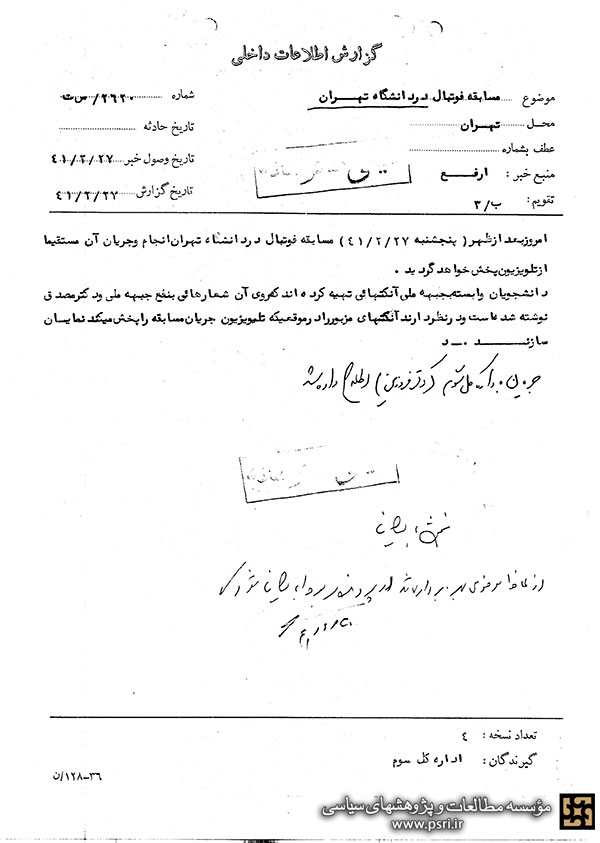 گزارش اطلاعات داخلی
موضوع مسابقه فوتبال دردانشگاه تهران
شماره ۲۶۲۰/س ت
محل تهران
تاریخ حادثه
عطف بشماره
تاریخ وصول خبر ۴۱/۲/۲۷
منبع خبر : ارفع
تاریخ گزارش ۴۱/۲/۲۷
تقویم : ب/۳
امروزبعد ازظهر( پنجشنبه ۴۱/۲/۲۷) مسابقه فوتبال دردانشگاه تهران انجام وجریان آن مستقیما
ازتلویزیون پخش خواهد گردید .
دانشجویان وابسته بجبهه ملی آنکتهائی تهیه کرده اند که روی آن شعارهائی بنفع جبهه ملی ودکترمصدق
نوشته شده است ودرنظردارند آنکتهای مزبوررادرموقعیکه تلیویزیون جریان مسابقه راپخش میکند نمایان
سازند . د
جریان به اداره کل سوم ( ) اطلاع داده شد
تعداد نسخه : ٤
گیرندگان : اداره کل سوم
۳۶-۱۲۸/ن
مؤسسه مطالعات و پژوهشهای سیاسی
www.psri.ir